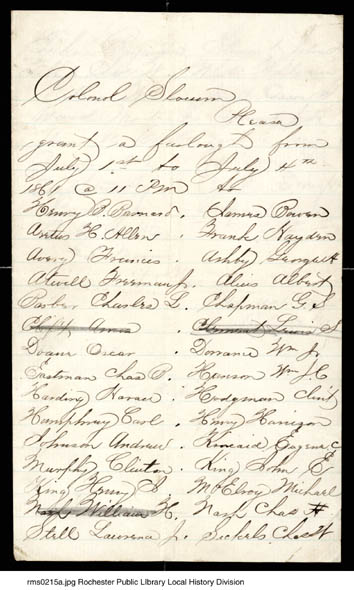 Colonel Slocum
Please
grant a furlough from
July 1st to July 4th
186 @ 11 PM to
Henry B. Barnard. James Bowen
Artus H. Allen. Frank Hayden
Avery Francis. Ashby
Atwell Freeman Jr. Alvis Albert
Barber Charles L. Chapman G. S.
Clift Amos . Clement Lewis S
Doane Oscar . Dorrance Wm Jr
Eastman Chas P. Hanson Wm J C
Harding Horace : Hodgman Clint
Humphrey Carl . Henry Harrison
Johnson Andrew . Kincaid Eugene C
Murphy Clinton. King John E
King Henry S. McElroy Michael
Nash William H. Nash Chas H
Still Lawrence Jr. Sickels Chas H
rms0215a.jpg Rochester Public Library Local History Division